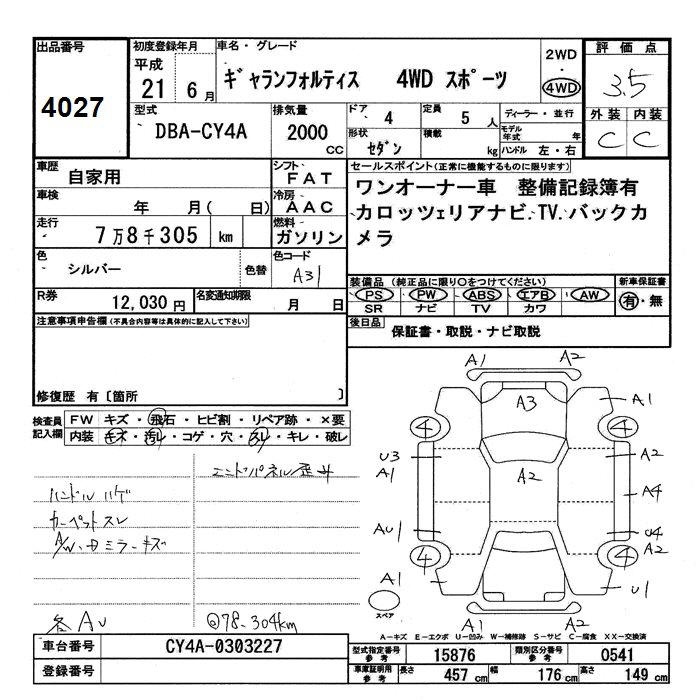 出品番号 初度登録年月 車名・グレード 2WD 評価点
4027 平成 21 6月 ギャランフォルティス 4WD スポーツ 4WD 3.5
型式 排気量 ドア 4 定員 5人 ディーラー・並行 外装 内装
DBA-CY4A 2000 CC 形状 セダン 積載 kg モデル年式 年 ハンドル 左・右 C C
車歴 自家用 シフト FAT セールスポイント(正常に機能するものに限ります)
車検 年 月( 日) 冷房 AAC ワンオーナー車 整備記録簿有
走行 7万8千305 km 燃料 ガソリン カロッツェリアナビ.TV.バックカ
メラ
色 シルバー 色替 色コード A31
装備品 (純正品に限り○をつけてください) 新車保証書
PS PW ABS エアB AW 有・無
SR ナビ TV カワ
R券 12,030円 名変通知期限 月 日
注意事項申告欄(不具合内容等は具体的に記入して下さい) 後日品 保証書・取説・ナビ取説
修復歴 有〔箇所 〕
検査員記入欄 FW キズ・飛石・ヒビ割・リペア跡・×要
内装 キズ・汚レ・コゲ・穴・スレ・キレ・破レ
エンドパネル歪み
ハンドルハゲ
カーペットスレ
A/W・ミラーキズ
各AU
@78.304km
A1 A2
A3 A1
4 4
U3 A2
A1 A2
A4
AU1 U4
A2
4 4
A1 U1
スペア
A1 A2
A-キズ E-エクボ U-凹み W-補修跡 S-サビ C-腐食 XX-交換済
車台番号 CY4A-0303227 型式指定番号 参考 15876 類別区分番号 参考 0541
登録番号 車庫証明用 参考 長さ 457cm 幅 176cm 高さ 149cm